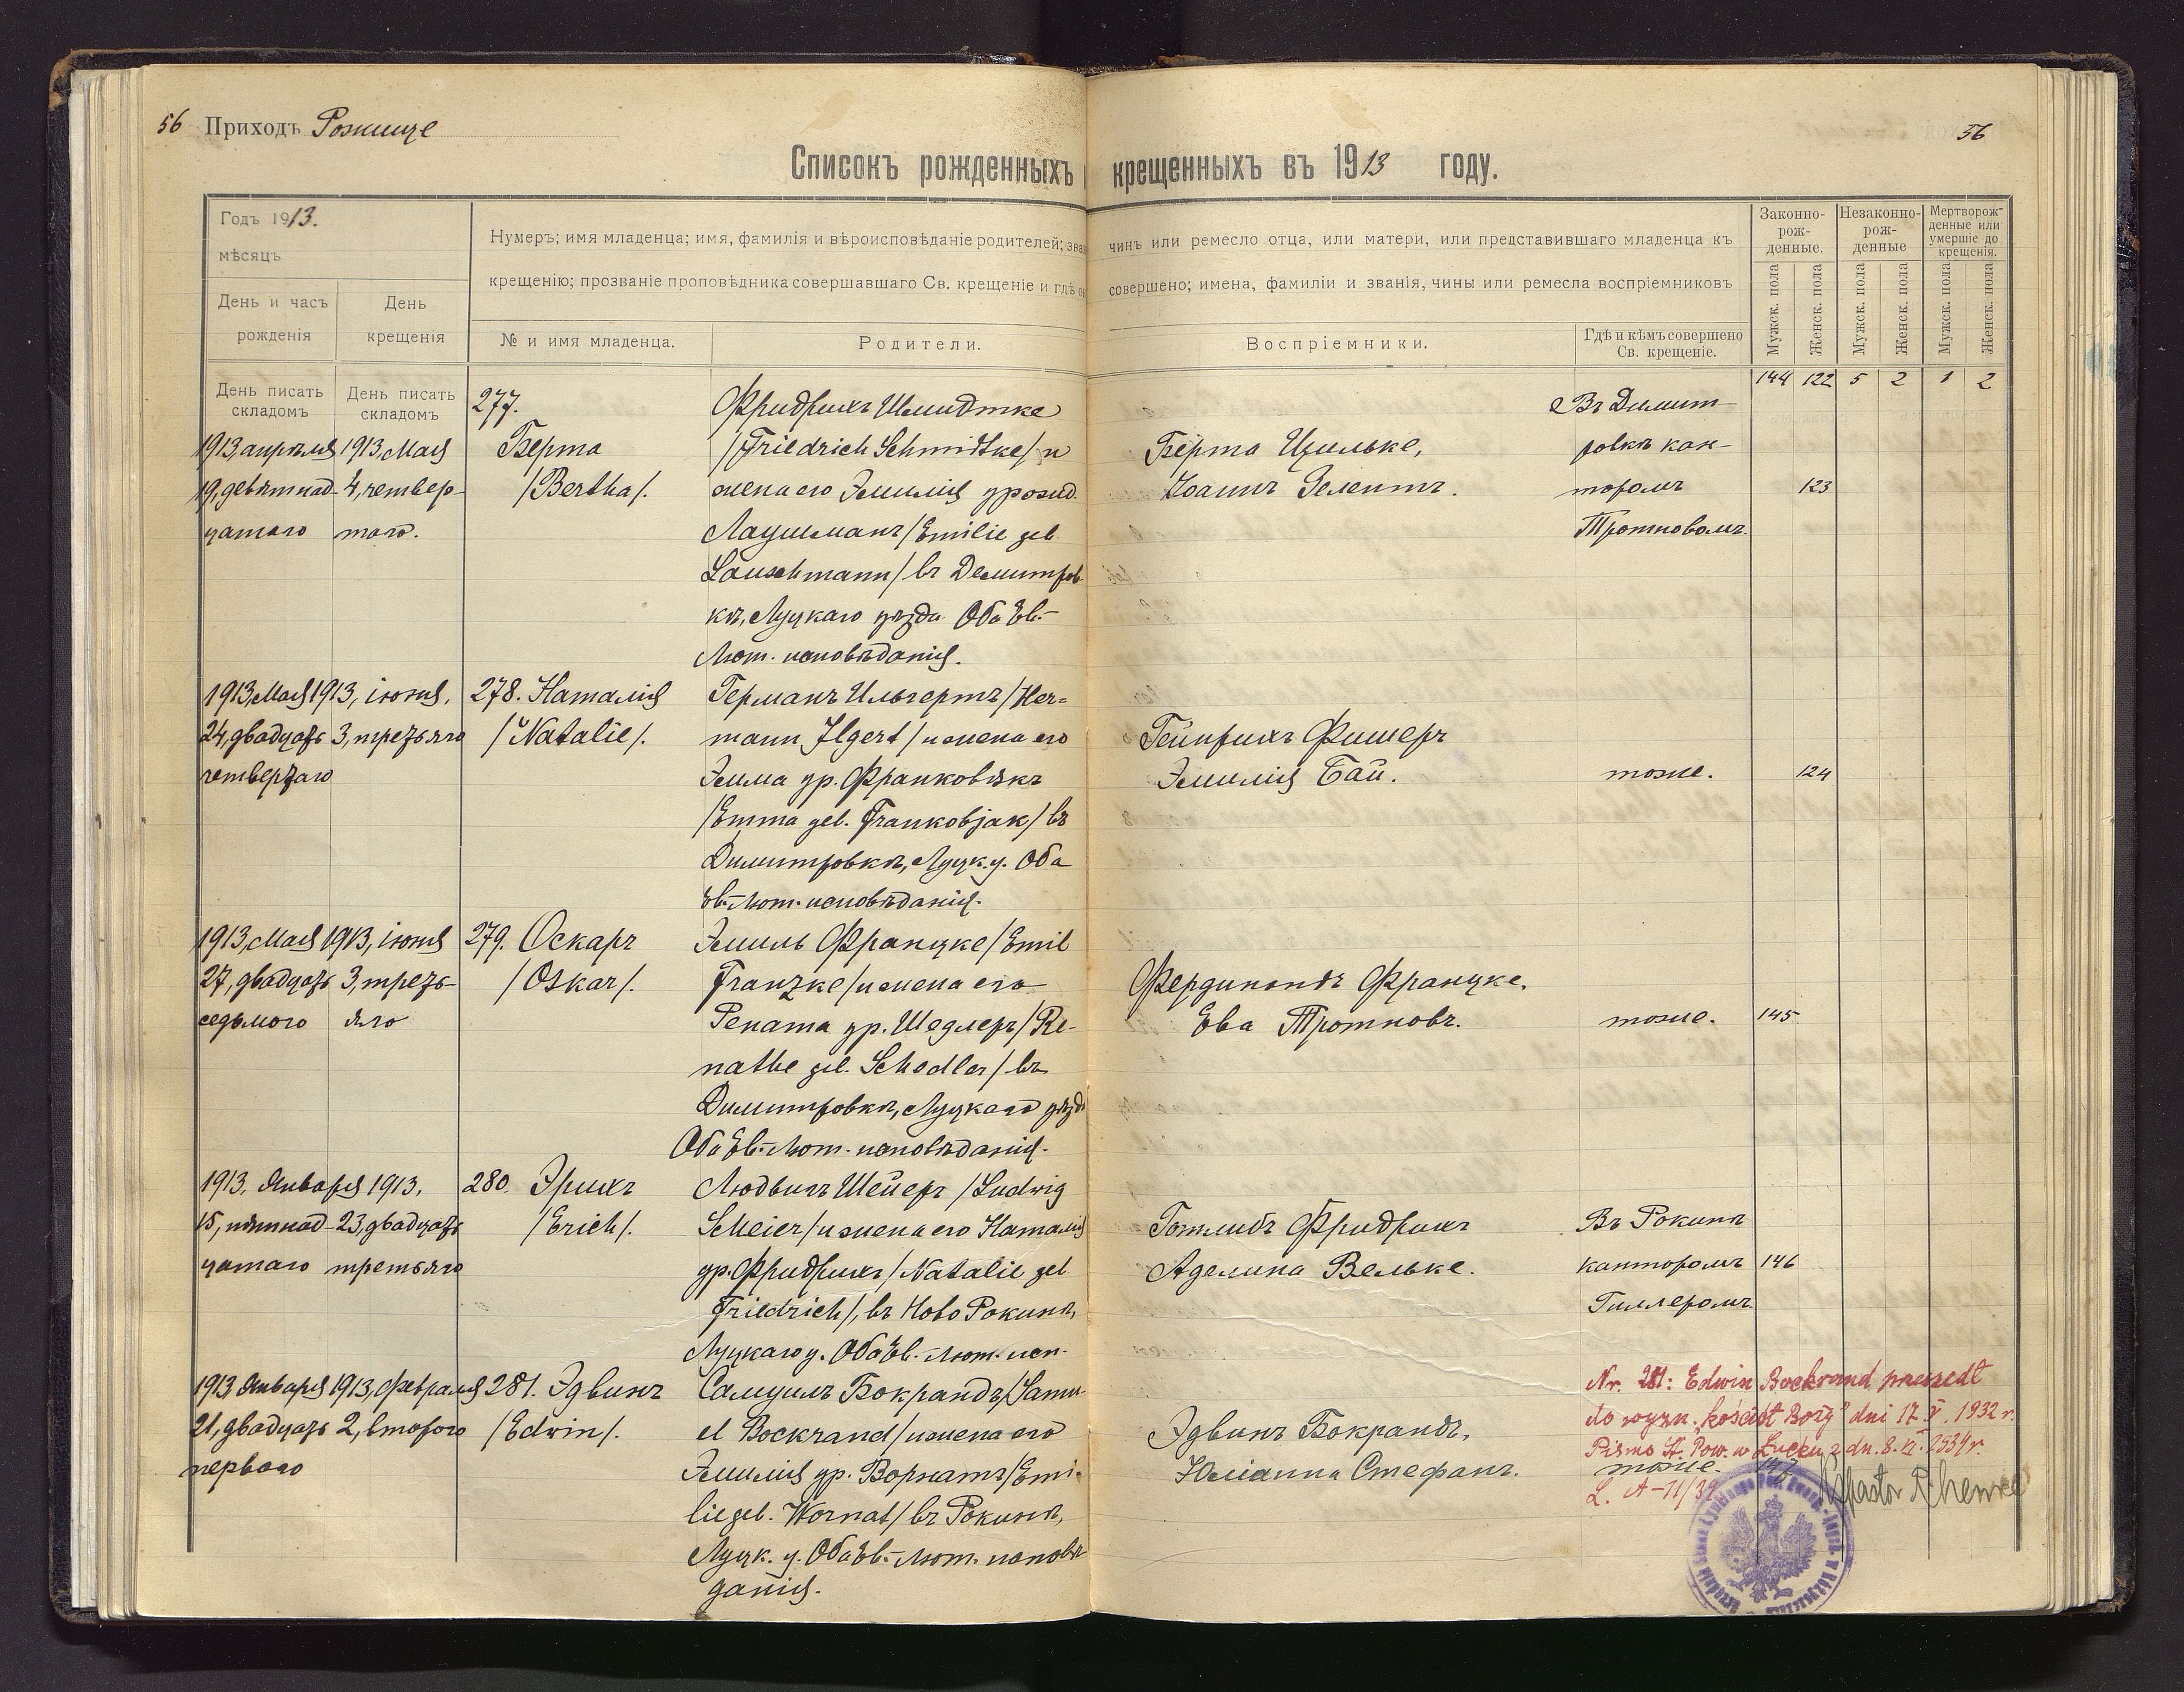 56 Приходъ Рожище
56
Списокъ рожденныхъ крещенныхъ въ 1913 году.
Годъ 1913.
мѣсяцъ
День и часъ рожденія
День крещенія
Нумеръ; имя младенца; имя, фамилія и вѣроисповѣданіе родителей; зва чинъ или ремесло отца, или матери, или представившаго младенца къ
крещенію; прозваніе проповѣдника совершавшаго Св. крещеніе и гдѣ о совершено; имена, фамиліи и званія, чины или ремесла воспріемниковъ
№ и имя младенца.
Родители.
Воспріемники.
Гдѣ и кѣмъ совершено
Св. крещеніе.
Законно-
рож-
денные.
Незаконно-
рож-
денные
Мертворож-
денные или
умершіе до
крещенія.
Мужск. пола
Женск. пола
Мужск. пола
Женск. пола
Мужск. пола
Женск. пола
144 122 5 2 1 2
День писать
складомъ
День писать
складомъ
1913, апрѣля
19, девятнад-
цатаго
1913, Мая
4, четвер-
таго.
277.
Берта
/Bertha/.
Фридрихъ Шмидтке
/Friedrich Schmidtke/ и
жена его Эмилія урожд.
Лаушманъ /Emilie geb.
Lauschmann/ въ Демитров-
кѣ, Луцкаго уѣзда Оба Ев.-
Лют. исповѣданія.
Берта Цильке,
Іоаннъ Зелентъ.
Въ Димит-
ровкѣ кан-
торомъ
Тротновомъ.
123
1913, Мая
24, двадцать
четвертаго
1913, іюня,
3, третьяго
278. Наталія
/Natalie/.
Германъ Ильгертъ /Her-
mann Ilgert/ и жена его
Эмма ур. Франковякъ
/Emma geb. Frankovjak/ въ
Димитровкѣ, Луцк. у. Оба
ев.-лют. исповѣданія.
Гейнрихъ Фишеръ
Эмилія Бай.
тоже.
124
1913, Мая
27, двадцать
седьмого
1913, іюня
3, треть-
яго
279. Оскаръ
/Oskar/.
Эмиль Францке /Emil
Franzke/ и жена его
Рената ур. Шедлеръ /Re-
nathe geb. Schedler/ въ
Димитровкѣ, Луцкаго уѣзда
Оба Ев.-Лют. исповѣданія.
Фердинандъ Францке.
Ева Тротновъ.
тоже.
145
1913, Января
15, пятнад-
цатаго
1913,
23, двадцать
третьяго
280. Эрихъ
/Erich/.
Людвигъ Шейеръ /Ludwig
Scheier/ и жена его Наталія
ур. Фридрихъ /Natalie geb.
Friedrich/, въ Ново Рокинѣ,
Луцкаго у. Оба Ев.-лют. исп.
Готлибъ Фридрихъ
Аделина Вельке.
Въ Рокинѣ
канторомъ
Гиллеромъ
146
1913 Января
21, двадцать
перваго
1913, февраля
2, второго
281. Эдвинъ
/Edwin/.
Самуилъ Бокрандъ /Samu-
el Bockrand/ и жена его
Эмилія ур. Ворнатъ /Emi-
lie geb. Wornat/ въ Рокинѣ,
Луцк. у. Оба Ев.-лют. исповѣ-
данія.
Эдвинъ Бокрандъ,
Юліанна Стефанъ.
тоже.
147
Nr. 281: Edwin Bockrand przeszedł
do wyzn. "kościół Boży" dni 17. V. 1932 r.
Pismo St. Pow. w Łucku z dn. 8. VI. 1934 r.
L. A-11/32
Pastor